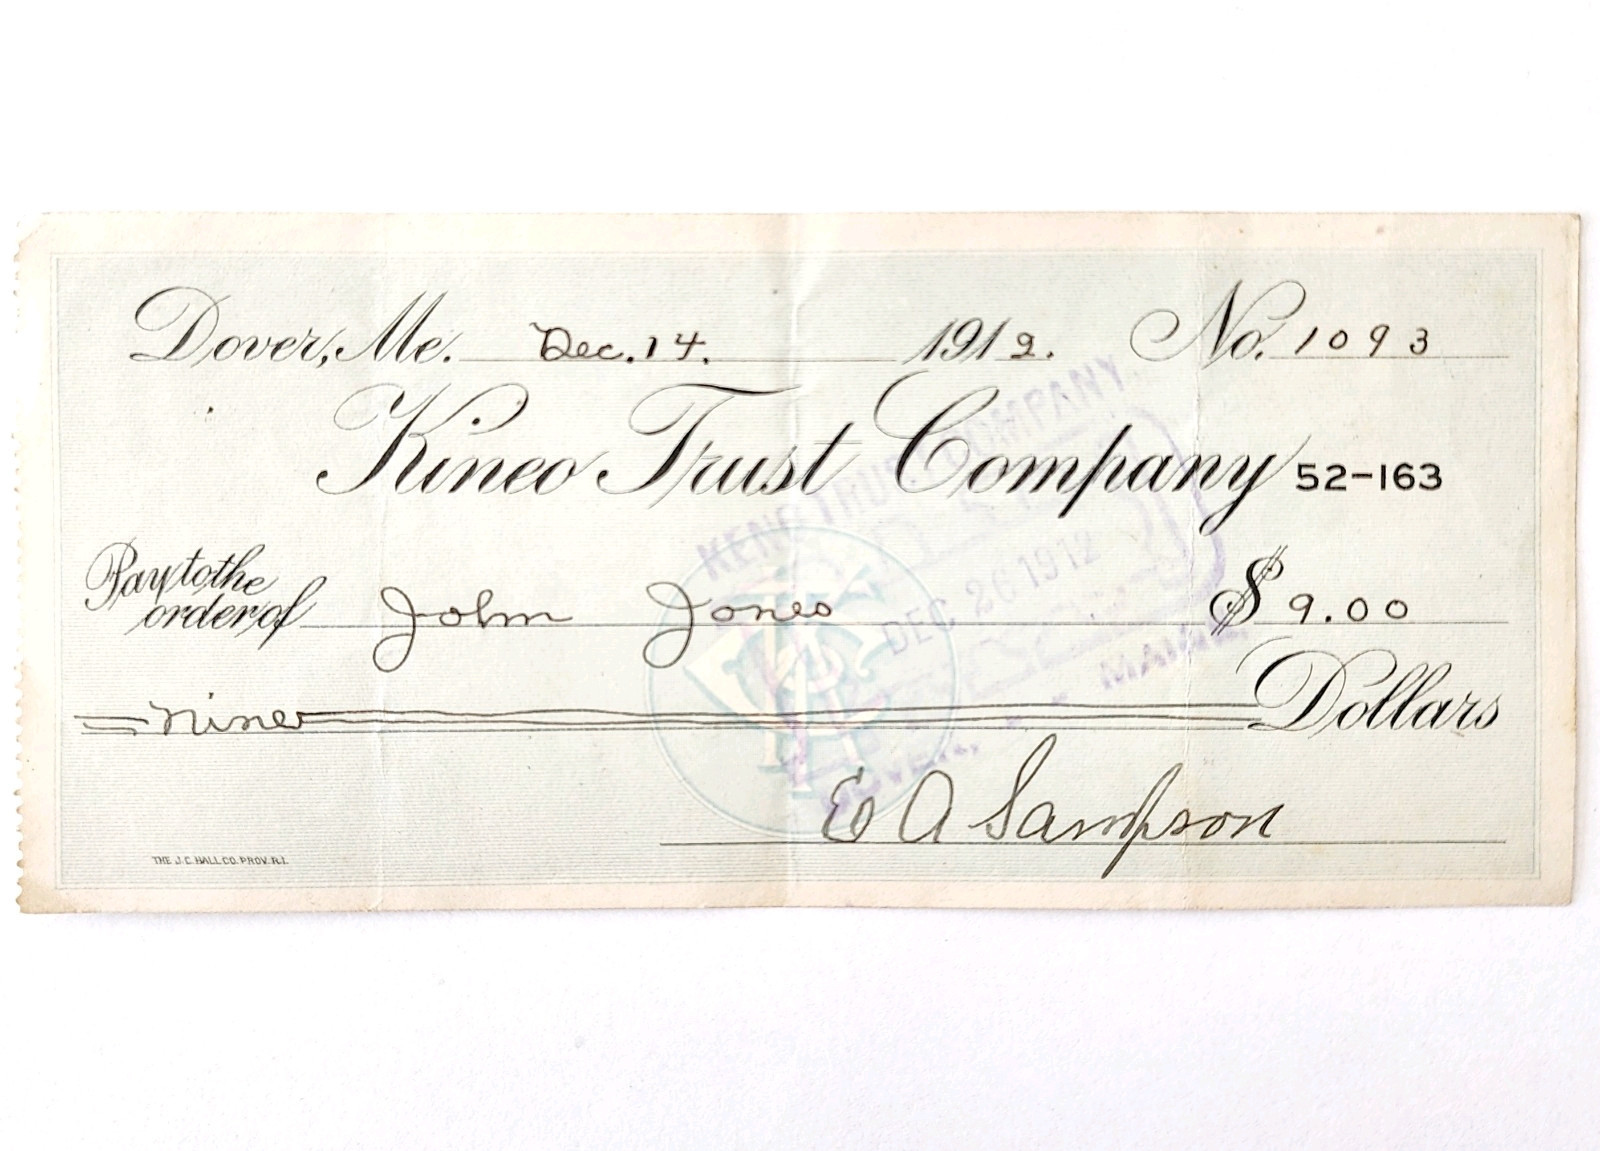 Dover, Me. Dec. 14. 1912. No. 1093
Kineo Trust Company 52-163
Pay to the order of John Jones $ 9.00
nine Dollars
E A Sampson
THE J.C. HALL CO. PROV. R.I.
KENO TRUST COMPANY
DEC 26 1912
DOVER, MAINE